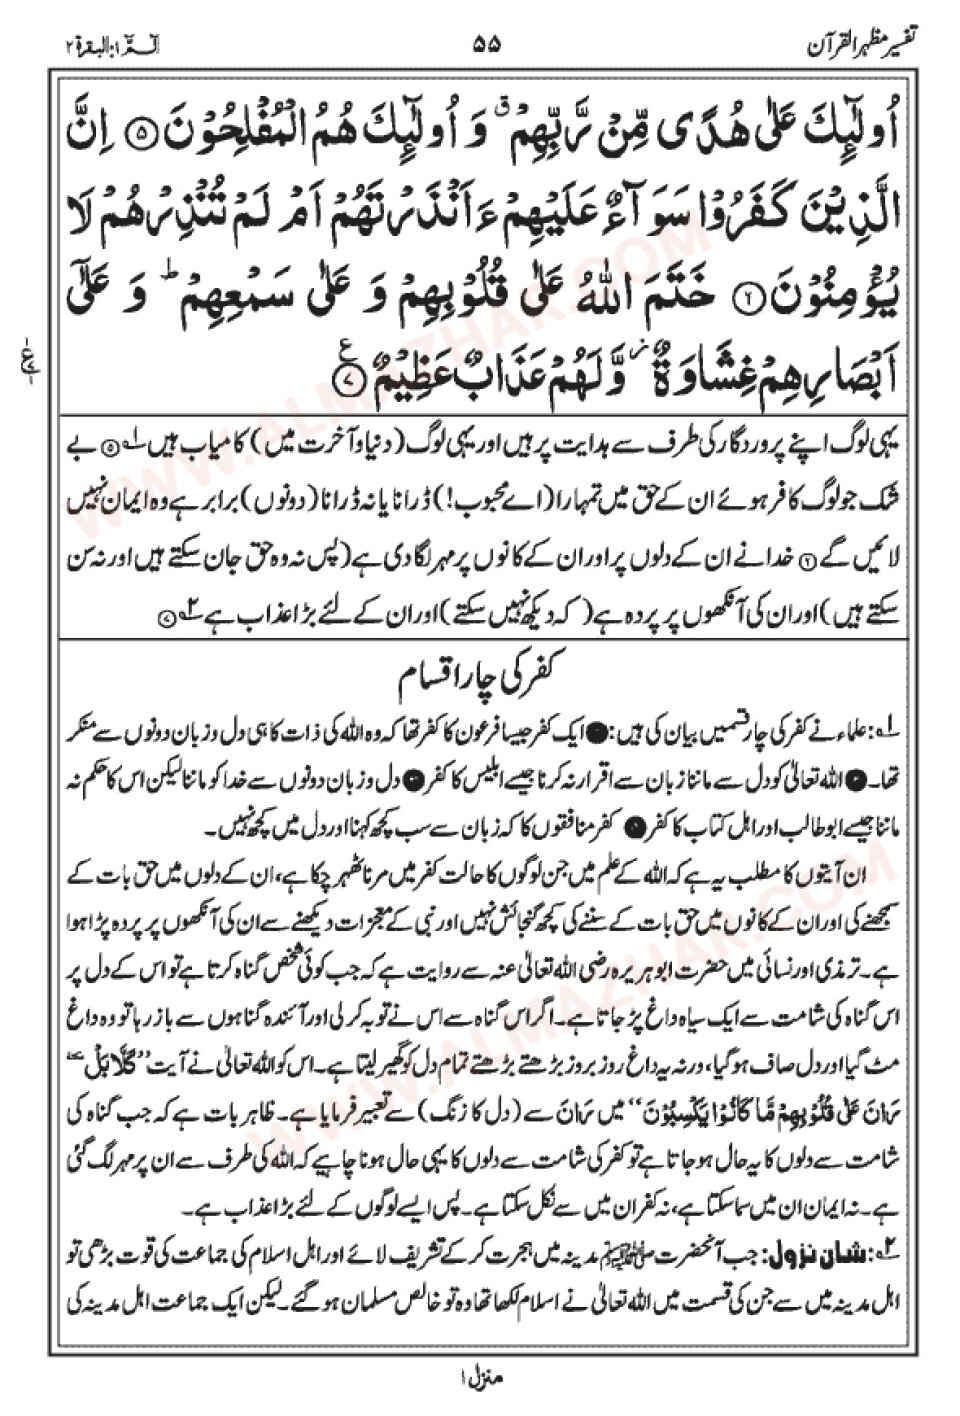 تفسیر مظہر القرآن
۵۵
الٓمّٓ ۱: البقرۃ ۲
اُولٰٓئِكَ عَلٰى هُدًى مِّنْ رَّبِّهِمْ ۗ وَ اُولٰٓئِكَ هُمُ الْمُفْلِحُوْنَ ۵ اِنَّ
الَّذِيْنَ كَفَرُوْا سَوَآءٌ عَلَيْهِمْ ءَاَنْذَرْتَهُمْ اَمْ لَمْ تُنْذِرْهُمْ لَا
يُؤْمِنُوْنَ ۶ خَتَمَ اللّٰهُ عَلٰى قُلُوْبِهِمْ وَ عَلٰى سَمْعِهِمْ ؕ وَ عَلٰٓى
اَبْصَارِهِمْ غِشَاوَةٌ ز وَّ لَهُمْ عَذَابٌ عَظِيْمٌ ۷ ع
یہی لوگ اپنے پروردگار کی طرف سے ہدایت پر ہیں اور یہی لوگ (دنیا و آخرت میں) کامیاب ہیں ۱؎ ۵ بے
شک جو لوگ کافر ہوئے ان کے حق میں تمہارا (اے محبوب!) ڈرانا یا نہ ڈرانا (دونوں) برابر ہے وہ ایمان نہیں
لائیں گے ۶ خدا نے ان کے دلوں پر اور ان کے کانوں پر مہر لگا دی ہے (پس نہ وہ حق جان سکتے ہیں اور نہ سن
سکتے ہیں) اور ان کی آنکھوں پر پردہ ہے (کہ دیکھ نہیں سکتے) اور ان کے لئے بڑا عذاب ہے ۲؎ ۷
کفر کی چار اقسام
۱؎: علماء نے کفر کی چار قسمیں بیان کی ہیں: ۱ ایک کفر جیسا فرعون کا کفر تھا کہ وہ اللہ کی ذات کا ہی دل و زبان دونوں سے منکر
تھا۔ ۲ اللہ تعالیٰ کو دل سے ماننا زبان سے اقرار نہ کرنا جیسے ابلیس کا کفر ۳ دل و زبان دونوں سے خدا کو ماننا لیکن اس کا حکم نہ
ماننا جیسے ابو طالب اور اہل کتاب کا کفر ۴ کفر منافقوں کا کہ زبان سے سب کچھ کہنا اور دل میں کچھ نہیں۔
ان آیتوں کا مطلب یہ ہے کہ اللہ کے علم میں جن لوگوں کا حالت کفر میں مرنا ٹھہر چکا ہے، ان کے دلوں میں حق بات کے
سمجھنے کی اور ان کے کانوں میں حق بات کے سننے کی کچھ گنجائش نہیں اور نبی کے معجزات دیکھنے سے ان کی آنکھوں پر پردہ پڑا ہوا
ہے۔ ترمذی اور نسائی میں حضرت ابو ہریرہ رضی اللہ تعالیٰ عنہ سے روایت ہے کہ جب کوئی شخص گناہ کرتا ہے تو اس کے دل پر
اس گناہ کی شامت سے ایک سیاہ داغ پڑ جاتا ہے۔ اگر اس گناہ سے اس نے توبہ کر لی اور آئندہ گناہوں سے باز رہا تو وہ داغ
مٹ گیا اور دل صاف ہو گیا، ورنہ یہ داغ روز بروز بڑھتے بڑھتے تمام دل کو گھیر لیتا ہے۔ اس کو اللہ تعالیٰ نے آیت ”كَلَّا بَلْ ٚ
رَانَ عَلٰى قُلُوْبِهِمْ مَّا كَانُوْا يَكْسِبُوْنَ“ میں رَانَ سے (دل کا زنگ) سے تعبیر فرمایا ہے۔ ظاہر بات ہے کہ جب گناہ کی
شامت سے دلوں کا یہ حال ہو جاتا ہے تو کفر کی شامت سے دلوں کا یہی حال ہونا چاہیے کہ اللہ کی طرف سے ان پر مہر لگ گئی
ہے۔ نہ ایمان ان میں سما سکتا ہے، نہ کفر ان میں سے نکل سکتا ہے۔ پس ایسے لوگوں کے لئے بڑا عذاب ہے۔
۲؎: شان نزول: جب آنحضرت ﷺ مدینہ میں ہجرت کر کے تشریف لائے اور اہل اسلام کی جماعت کی قوت بڑھی تو
اہل مدینہ میں سے جن کی قسمت میں اللہ تعالیٰ نے اسلام لکھا تھا وہ تو خالص مسلمان ہو گئے۔ لیکن ایک جماعت اہل مدینہ کی
منزل ۱
WWW.ALMAZHAR.COM
WWW.ALMAZHAR.COM